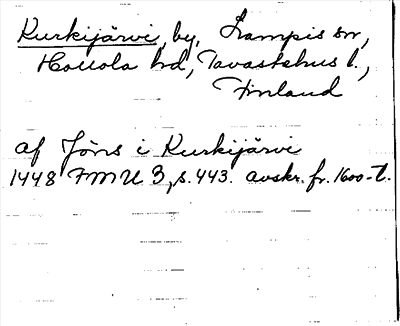 Kurkijärvi, by, Lampis sn,
Hollola hd, Tavastehus l.,
Finland
af Jöns i Kurkijärvi
1448 FMU 3, s. 443. avskr. fr. 1600-t.